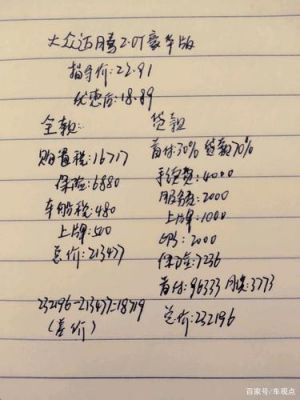 大众迈腾2.0T豪华版
指导价:22.91
优惠后:18.89
全款:
购置税:16717
保险:6880
车船税:480
上牌:500
总价:213477
232196-213477=18719
(差价)
贷款
首付30% 贷款70%
手续费:4000
服务费:2000
上牌:1000
GPS:2000
保险:7236
首付:96333 月供:3773
总价:232196
百家号/车视点